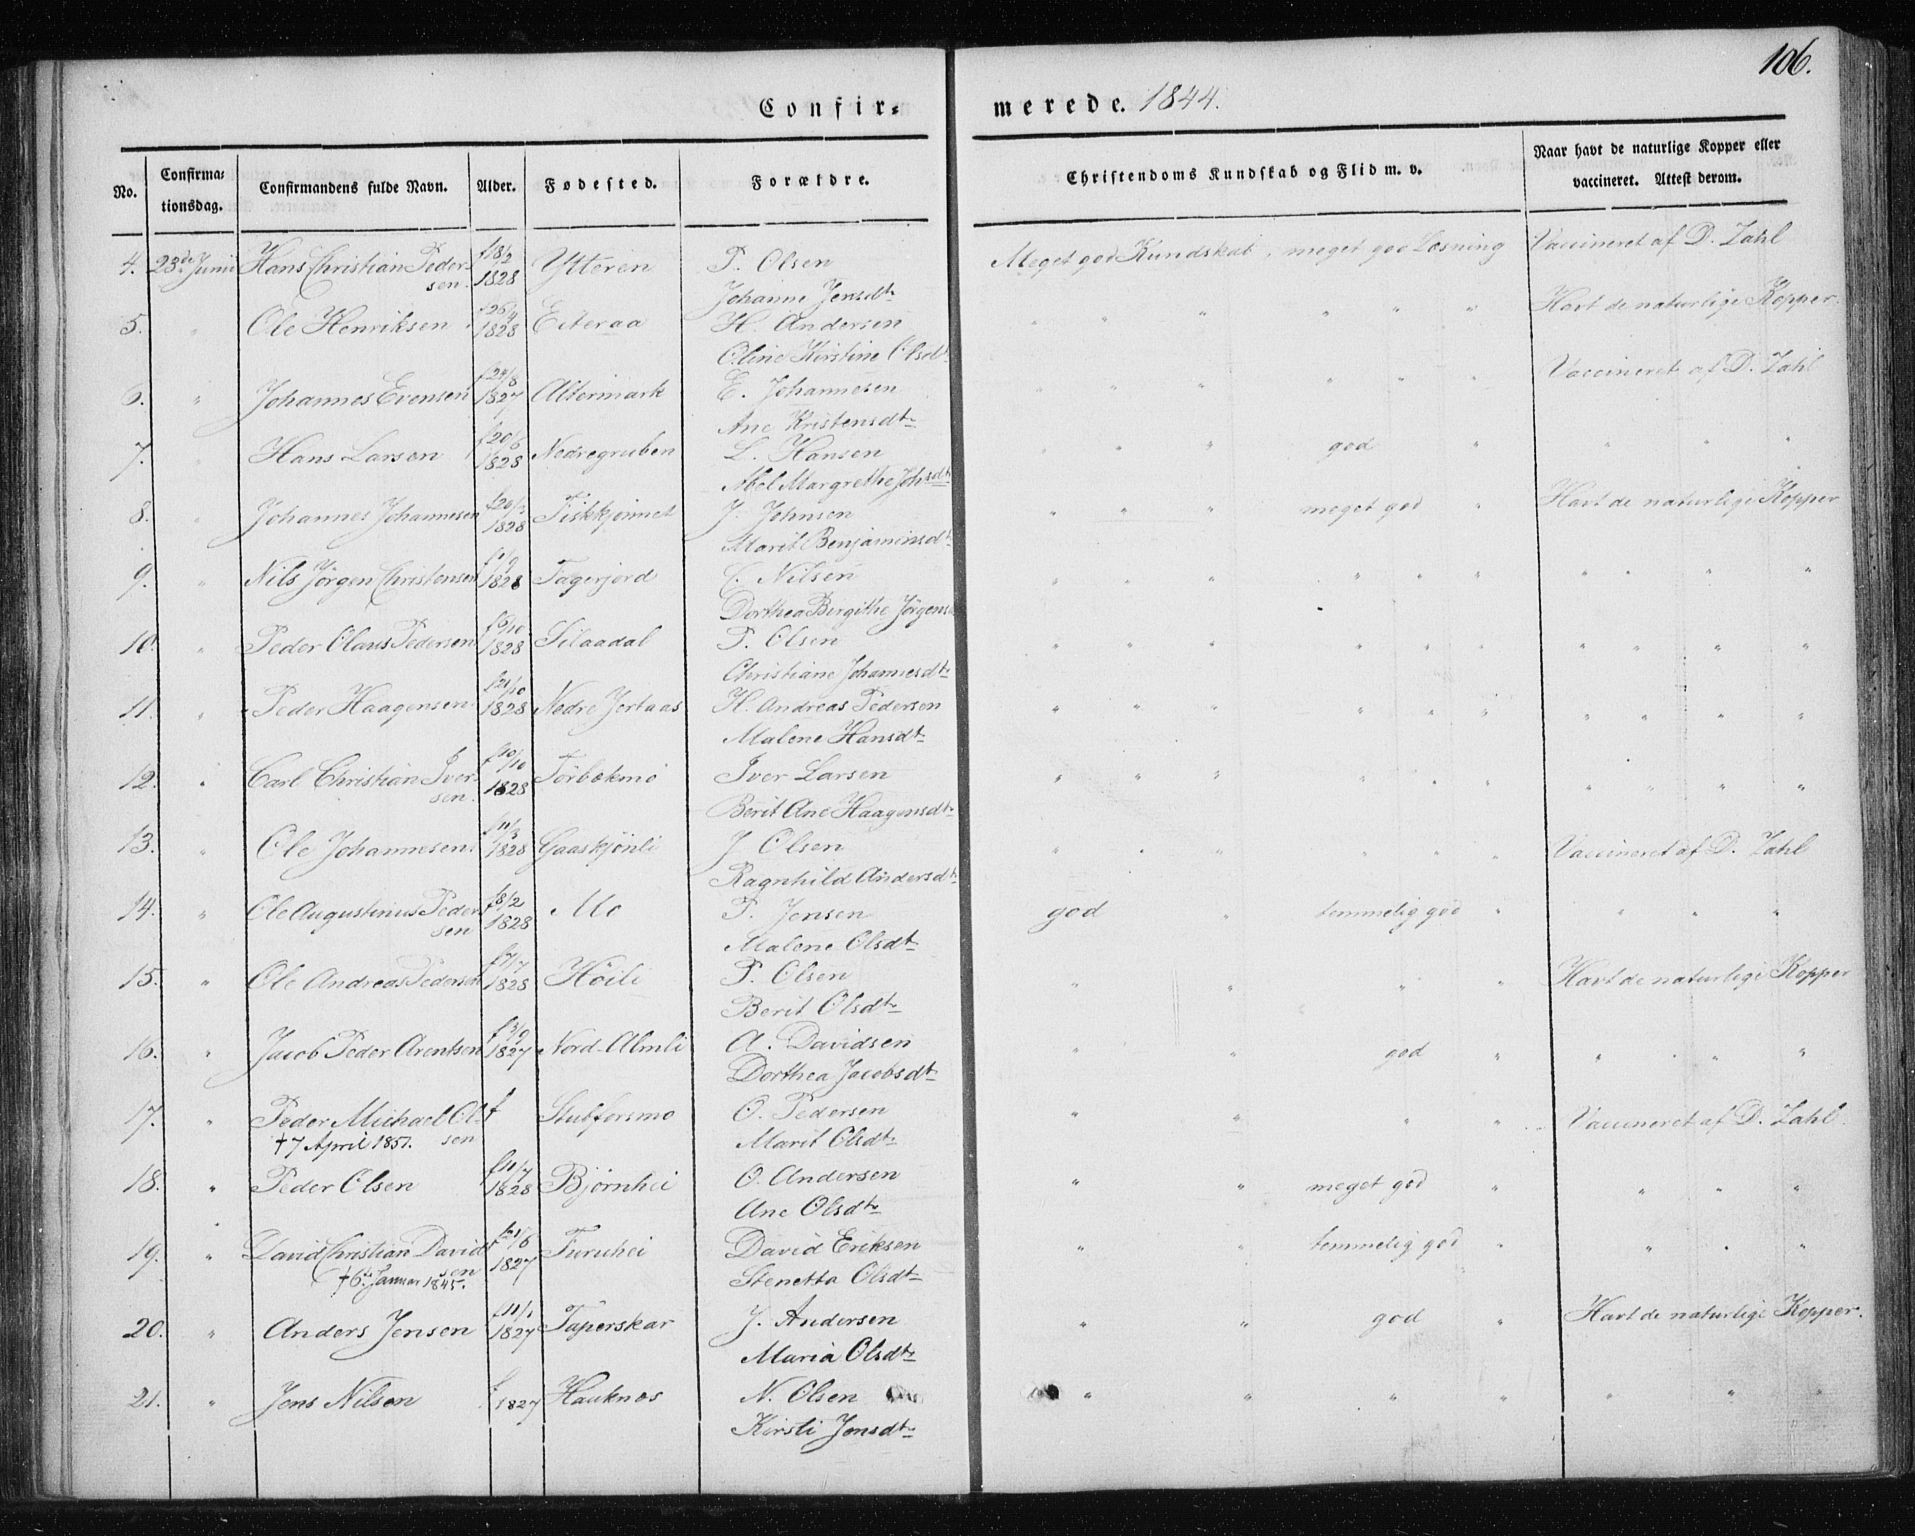 106.
Confir= merede. 1844.
No. Confirma=tionsdag. Confirmandens fulde Navn. Alder. Fødested. Forældre. Christendoms Kundskab og Flid m. v. Naar havt de naturlige Kopper eller vaccineret. Attest derom.
4. 23de Junii Hans Christian Peder= f 18/2 Ytteren P. Olsen Meget god Kundskab, meget god Læsning Vaccineret af D. Zahl
sen. 1828 Johanne Jensdtr
5. " Ole Henriksen f 26/4 1828 Eiteraa H. Andersen " " " " " " Havt de naturlige Kopper.
Oline Kirstine Olsdtr
6. " Johannes Evensen f 24/8 1827 Altermark E. Johannesen " " " " " " Vaccineret af D. Zahl
Ane Kristensdtr
7. " Hans Larsen f 20/6 1828 Nedregruben L. Hansen " " " god " " " "
Abel Margrethe Johsdtr
8. " Johannes Johannesen 1828 Fiskkjønnet J. Johnsen " " " meget god " Havt de naturlige Kopper
Marit Benjaminsdtr
9. " Nils Jörgen Christensen f 1/9 1828 Fagerjord C. Nilsen " " " " " " " " " "
Dorthea Birgithe Jörgens
10. " Peder Olaus Pedersen 1828 Silaadal P. Olsen " " " " " " " " " "
Christiane Johannesdtr
11. " Peder Haagensen f 21/10 1828 Nedre Jertaas H. Andreas Pedersen " " " " " " " " " "
Malene Hansdtr
12. " Carl Christian Iver= f 10/10 Förbekmo Iver Larsen " " " " " " " " " "
sen. 1828 Berit Ane Haagensdtr
13. " Ole Johannesen f 11/3 1828 Gaaskjönli J Olsen " " " " " " Vaccineret af D. Zahl
Ragnhild Andersdtr
14. " Ole Augustinus Peder= f 8/2 Mo P. Jensen god " temmelig god " " " "
sen 1828 Malene Olsdtr
15. " Ole Andreas Pedersen f 7/7 1828 Höili P. Olsen " " " " Havt de naturlige Kopper
Berit Olsdtr
16. " Jacob Peder Arentsen f 3/9 1827 Nord-Almli A. Davidsen " " god " " " "
Dorthea Jacobsdtr
17. " Peder Michael Ol= f Stubforsmo O. Pedersen " " " " Vaccineret af D. Zahl.
† 7 April 1851. sen Marit Olsdtr
18. " Peder Olsen f 11/7 1828 Bjørnhei O. Andersen " " meget god " " " "
Ane Olsdtr
19. " David Christian Davids= f 21/6 Furuhei David Eriksen " " temmelig god " " " "
sen 1827 Stenetta Olsdtr
† 6te Januar 1845.
20. " Anders Jensen f 11/1 1827 Taperskar J. Andersen " " god " Havt de naturlige Kopper.
Maria Olsdtr
21. " Jens Nilsen f 1827 Hauknes N. Olsen " " " " " " "
Kirsti Jensdtr